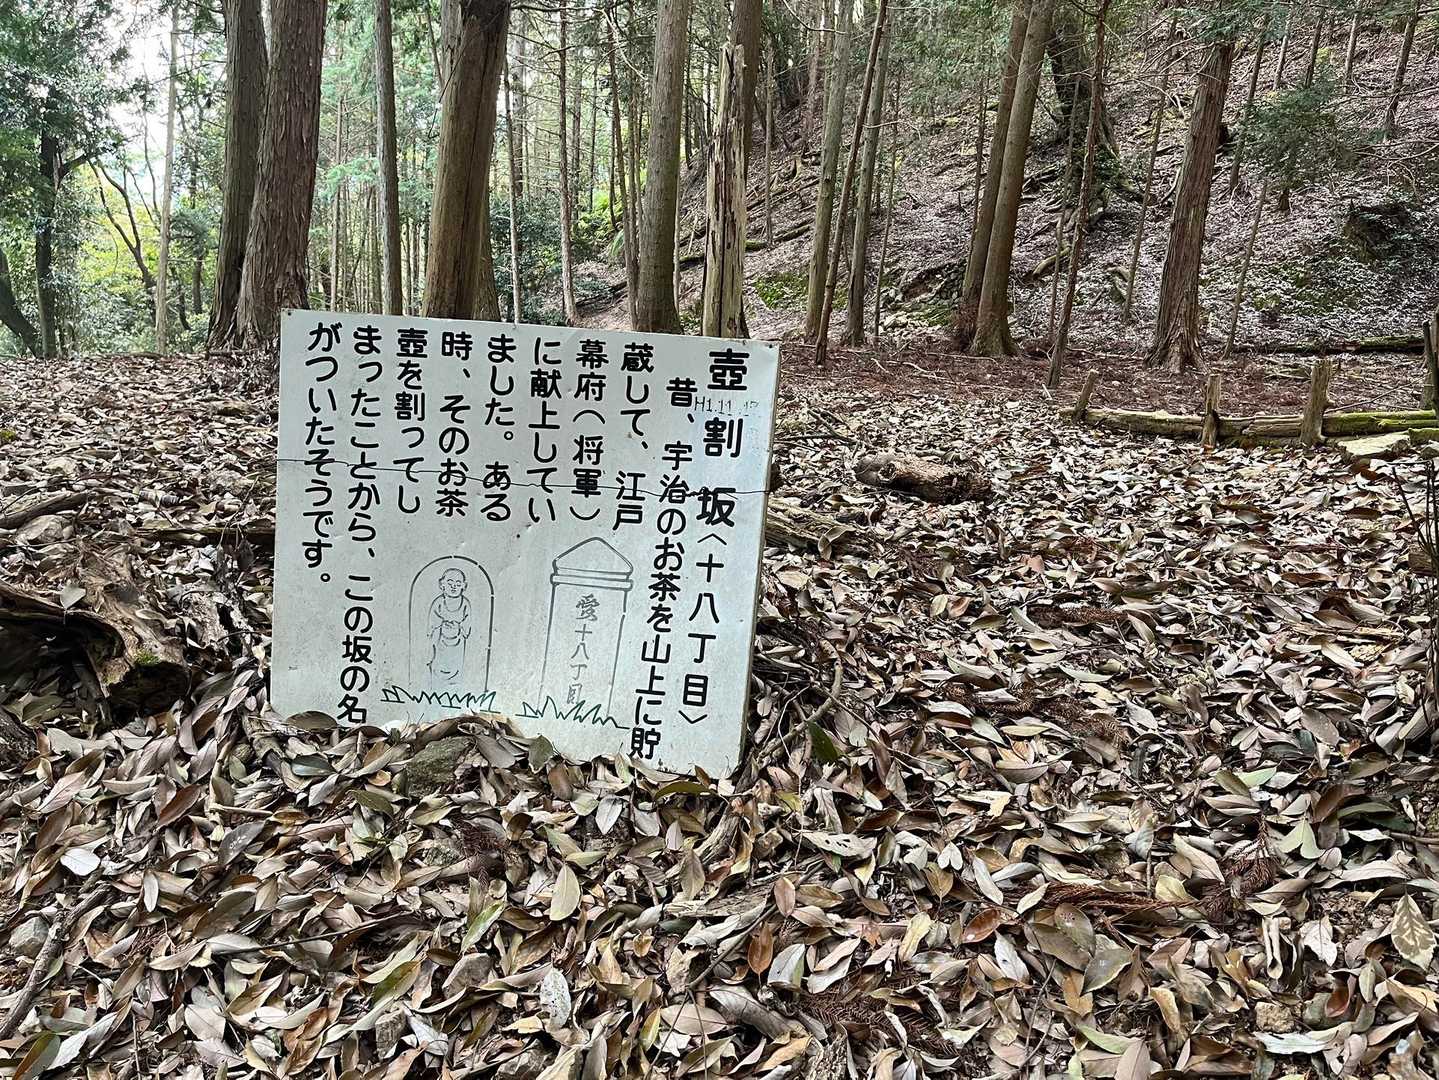 壺割坂〈十八丁目〉
H1.11.
昔、宇治のお茶を山上に貯
蔵して、江戸
幕府(将軍)
に献上してい
ました。ある
時、そのお茶
壺を割ってし
まったことから、この坂の名
がついたそうです。
愛十八丁目